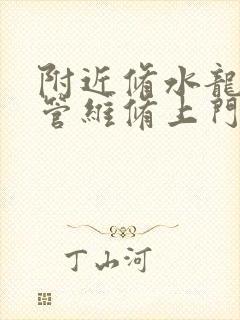 附近脩水龍
管維脩上門
丁山河